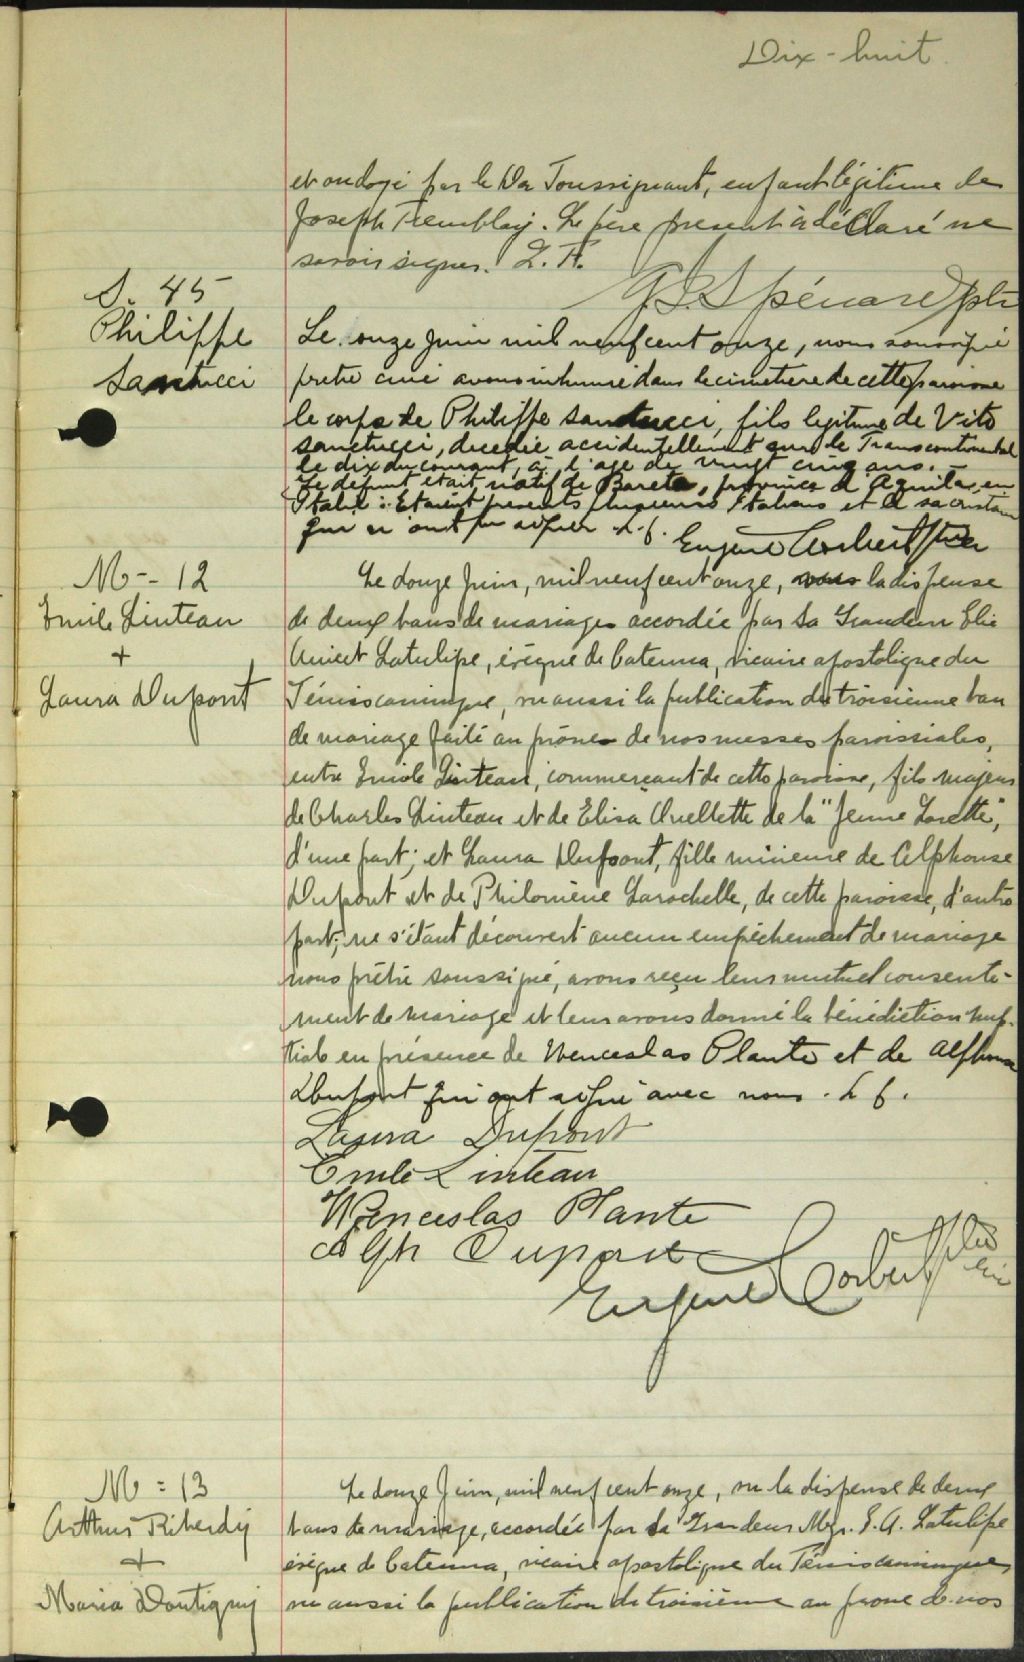 Dix-huit
et ondoyé par le Dr Toussignant, enfant légitime de
Joseph Tremblay. Le père present à déclaré ne
savoir signer. L. F.
J. S. Spénard ptr
S. 45
Philippe
Santucci
Le onze Juin mil neuf cent onze, nous soussigné
pretre curé avons inhumé dans le cimetiere de cette paroisse
le corps de Philippe Santucci, fils legitime de Vito
Sanctucci, décédé accidentellement sur le Transcontinental
le dix du courant, à l'age de vingt cinq ans.
Le défunt était natif de Barete, province d'Aquila, en
Italie. Etaient presents plusieurs Italiens et le sacristain
qui n'ont pu signer. L. f. Eugene Corbeil Ptre
M - 12
Emile Linteau
+
Laura Dupont
Le douze Juin, mil neuf cent onze, vu la dispense
de deux bans de mariage accordée par Sa Grandeur Elie
Anicet Latulipe, évêque de Catenna, vicaire apostolique du
Témiscamingue, vu aussi la publication du troisieme ban
de mariage faite au prône de nos messes paroissiales,
entre Emile Linteau, commerçant de cette paroisse, fils majeur
de Charles Linteau et de Elisa Ouellette de la "Jeune Lorette",
d'une part; et Laura Dupont, fille mineure de Alphonse
Dupont et de Philomène Larochelle, de cette paroisse, d'autre
part; ne s'étant découvert aucun empêchement de mariage
nous prêtre soussigné, avons reçu leur mutuel consente-
ment de mariage et leur avons donné la bénédiction nup-
tiale en présence de Wenceslas Plante et de Alphonse
Dupont qui ont signé avec nous. L f.
Laura Dupont
Emile Linteau
Wenceslas Plante
Alph Dupont
Eugene Corbeil Ptre
curé
M = 13
Arthur Riberdy
+
Maria Dontigny
Le douze Juin, mil neuf cent onze, vu la dispense de deux
bans de mariage, accordée par Sa Grandeur Mgr. E. A. Latulipe
évêque de Catenna, vicaire apostolique du Témiscamingue
vu aussi la publication du troisième au prone de nos